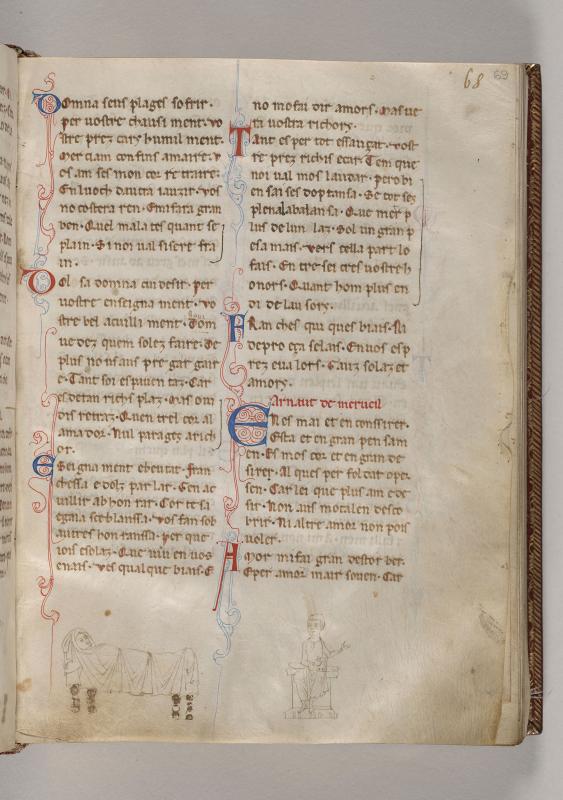 68
69
Domna sens plages sofrir.
per uostre chausi ment. vo
stre prez carz humil ment.
Mer clam con fins amaire. v
os am ses mon cor re traire.
En luoch dautra iauzir. vos
no costera ren. Em fara gran
ben. Quel mala tes quant se
plain. Si noi ual sisere fra
in.
Del sa domna cui desir. per
uostre enseigna ment. vo
stre bel acuilla ment. Dom
ue dez quem solez faire. De
plus no us aus pre gar gair
e. Tant soi espauen taz. Car
es detan richs plaz. Mas om
dis retraz. Quen trel cor al
ama dor. Nul paragez arich
or.
Enseigna ment ebeutat. fran
chessa e dolz par lar. Gen ac
uillir ab hon rar. Cor te sa
egaia senblanssa. vos fan sob
autres hon ranssa. per que
iois esolaz. Que uiu en uos
enais. ves qual que biais. E
no mo fai dir amors. Mas ue
ra uostra richors.
Tant es per tot essauzat. vost
re prez richs e car. Tem que
noi ual mos lauzar. pero bi
en sai ses dop tansa. Se tot sez
plena la balansa. Que mer p
lus de lun laz. Sol un gran p
esa mais. vers cella part lo
fais. En tre sei cres uostre h
onors. Quant hom plus en
di de lau sors.
Fran ches qui ques biais. Na
de pro eza selais. En uos es p
rez eua lors. Gauz solaz et
amors.
Arnaut de merueil
Enes mai et en conssirer.
Esta et en gran pen sam
en. Es mos cor et en gran de
sirer. Al ques per foldat oper
sen. Car lei que plus am e de
sir. Non aus mo talen desco
brir. Ni altre amor non pois
uoler.
Amor mi fai gran destor ber.
E per amor mair souen. Car